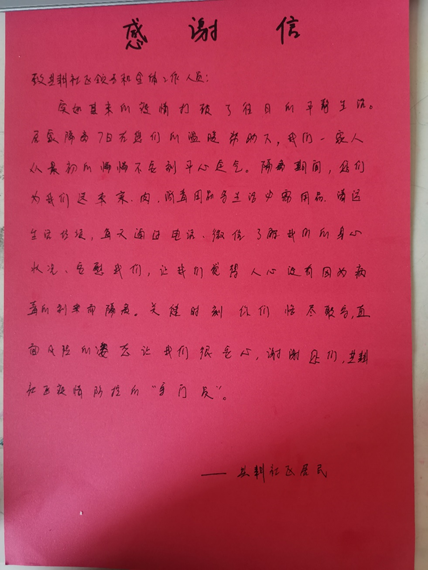 感谢信
致社区领导和全体工作人员:
突如其来的疫情打破了往日的平静生活。
居家隔离7日在您们的温暖帮助下,我们一家人
从最初的惴惴不安到平心定气。隔离期间,你们
为我们送来菜、肉、消毒用品等生活必需用品、清运
生活垃圾,每天通过电话、微信了解我们的身心
状况、安慰我们,让我们觉得人心没有因为病
毒的到来而隔离。关键时刻你们恪尽职守,直
面风险的姿态让我们很安心,谢谢您们,
社区疫情防控的“守门员”。
——社区居民